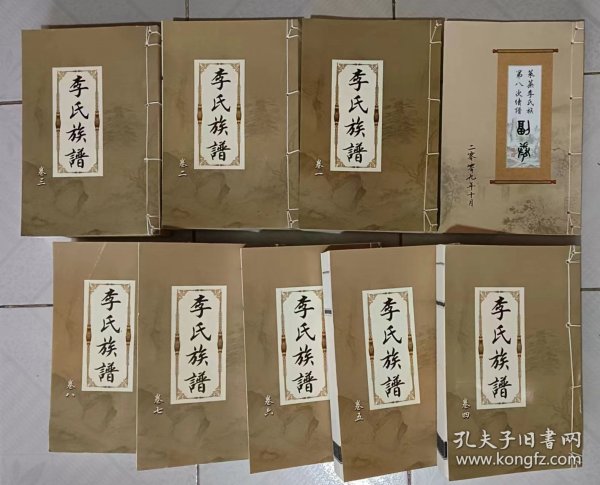 李氏族譜
卷三
李氏族譜
卷二
李氏族譜
卷一
莱蕪李氏族
第八次續譜
副譜
二零零九年十月
李氏族譜
卷八
李氏族譜
卷七
李氏族譜
卷六
李氏族譜
卷五
李氏族譜
卷四
孔夫子旧书网
www.kongfz.com